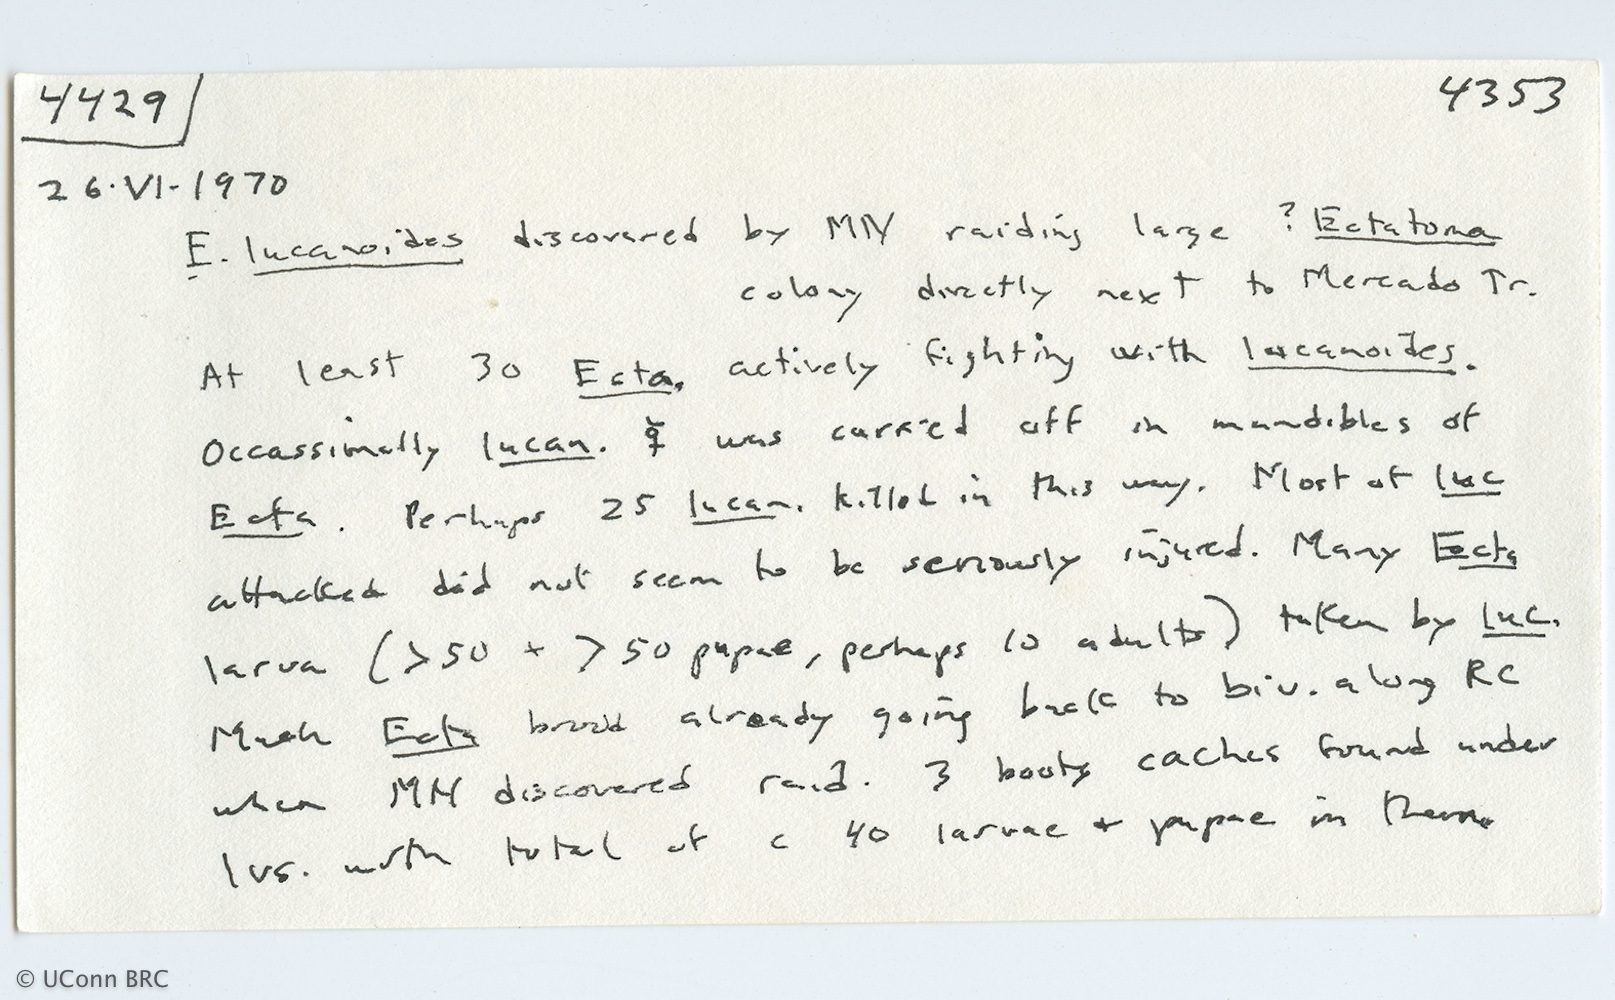 4429 4353
26·VI-1970
E. lucanoides discovered by MN raiding large ? Ectatoma
colony directly next to Mercado Tr.
At least 30 Ecta. actively fighting with lucanoides.
Occassinally lucan. ☿ was carried off in mandibles of
Ecta. Perhaps 25 lucan. killed in this way. Most of luc
attacked did not seem to be seriously injured. Many Ecta
larva (>50 + >50 pupae, perhaps 10 adults) taken by luc.
Much Ecta brood already going back to biv. along RC
when MN discovered raid. 3 booty caches found under
lvs. with total of c 40 larvae + pupae in them.
© UConn BRC